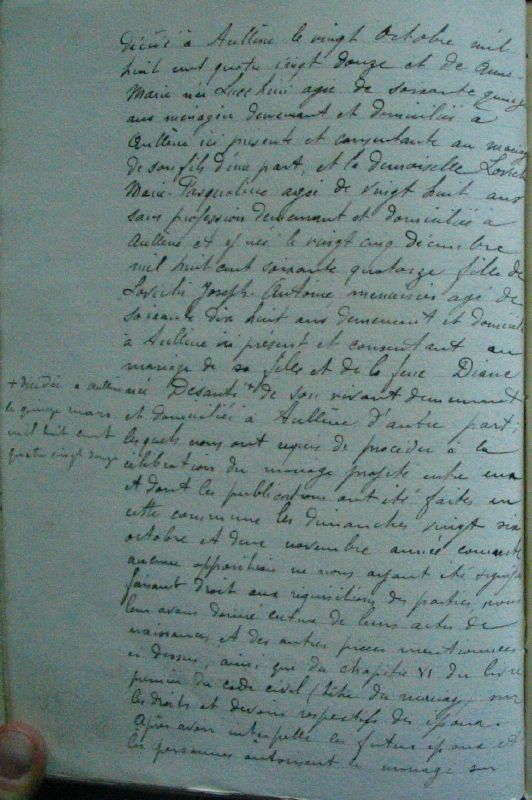 décédé à Aullène le vingt Octobre mil
huit cent quatre vingt douze et de Anne
Marie née Lucchini agée de soixante quinze
ans ménagère demeurant et domiciliée à
Aullène ici présente et consentante au mariage
de son fils d'une part, et la demoiselle Lovichi
Marie Pasqualine agée de vingt huit ans
sans profession demeurant et domiciliée à
Aullène et y née le vingt cinq décembre
mil huit cent soixante quatorze fille de
Lovichi Joseph Antoine menuisier agé de
soixante dix huit ans demeurant et domicilié
à Aullène ici présent et consentant au
mariage de sa fille et de la feue Diane
née Desanti + de son vivant demeurant
et domiciliée à Aullène d'autre part;
lesquels nous ont requis de procéder à la
célébration du mariage projeté entre eux
et dont les publications ont été faites en
cette commune les dimanches vingt six
octobre et deux novembre année courante
aucune opposition ne nous ayant été signifiée
faisant droit aux réquisitions des parties, nous
leur avons donné lecture de leurs actes de
naissances, et des autres pièces mentionnées
ci dessus, ainsi que du chapitre VI du livre
premier du code civil (titre du mariage) sur
les droits et devoirs respectifs des époux.
Après avoir interpellé les futurs époux et
les personnes autorisant le mariage sur
+ décédée à Aullène
le quinze mars
mil huit cent
quatre vingt douze